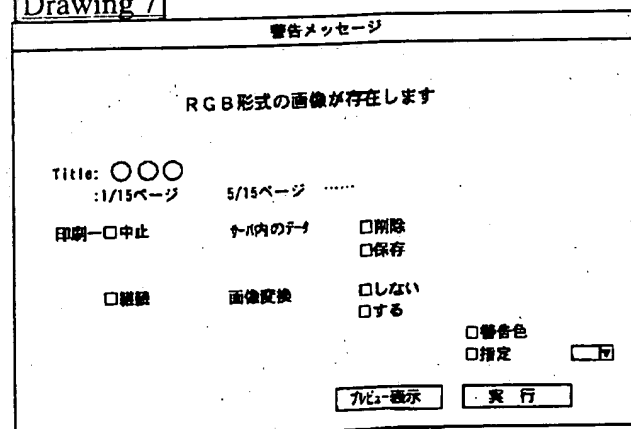 Drawing 7
警告メッセージ
RGB形式の画像が存在します
Title: ○○○
:1/15ページ 5/15ページ ……
印刷ー□中止 サーバ内のデータ □削除
□保存
□継続 画像変換 □しない
□する
□警告色
□指定
プレビュー表示 実行